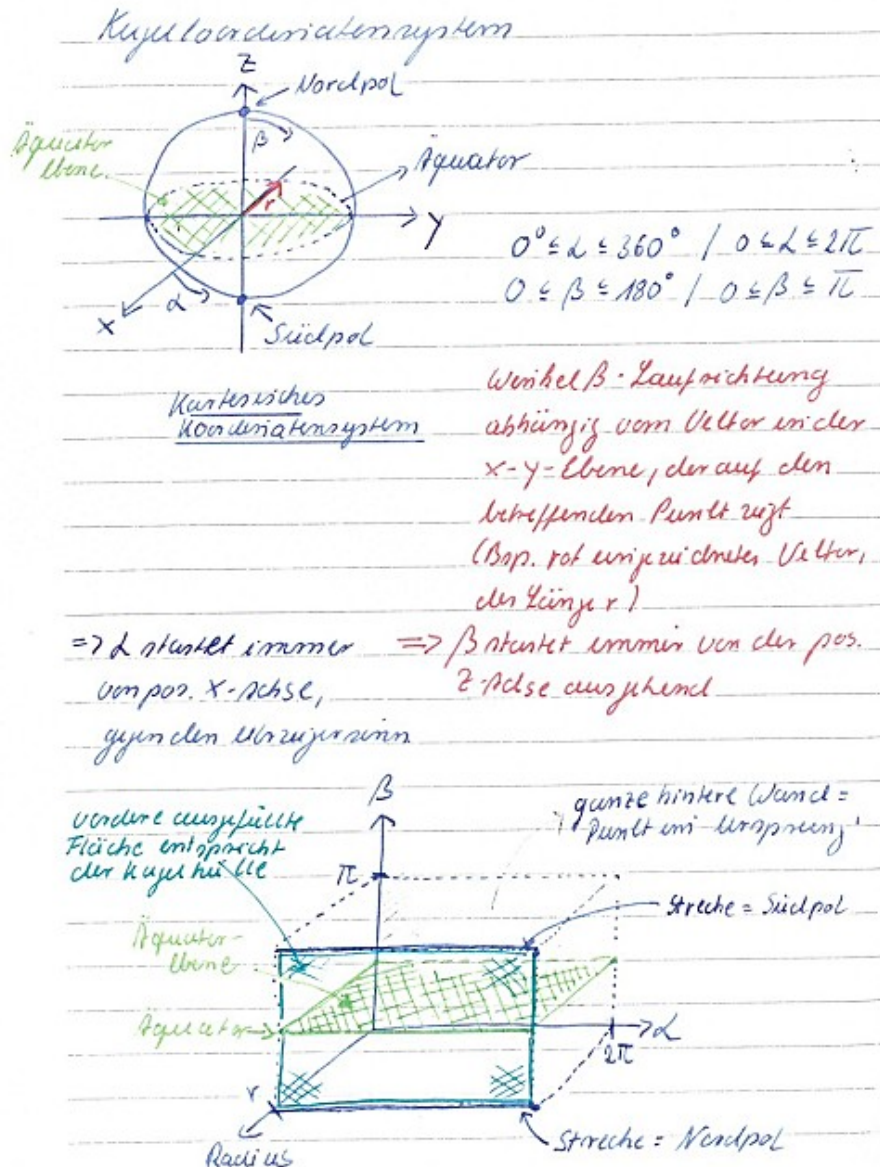 Kugelkoordinatensystem
Z
Nordpol
β
Äquator
Ebene
Äquator
r
Y
0° ≤ α ≤ 360° / 0 ≤ α ≤ 2π
0 ≤ β ≤ 180° / 0 ≤ β ≤ π
X
α
Südpol
Kartesisches
Koordinatensystem
Winkel β - Laufrichtung
abhängig vom Vektor in der
x-y-Ebene, der auf den
betreffenden Punkt zeigt
(Bsp. rot eingezeichneter Vektor,
der Länge r)
=> α startet immer
von pos. X-Achse,
gegen den Uhrzeigersinn
=> β startet immer von der pos.
Z-Achse ausgehend
β
vordere ausgefüllte
Fläche entspricht
der Kugelhülle
ganze hintere Wand =
Punkt im Ursprung
π
Strecke = Südpol
Äquator-
Ebene
Äquator
α
2π
r
Radius
Strecke = Nordpol